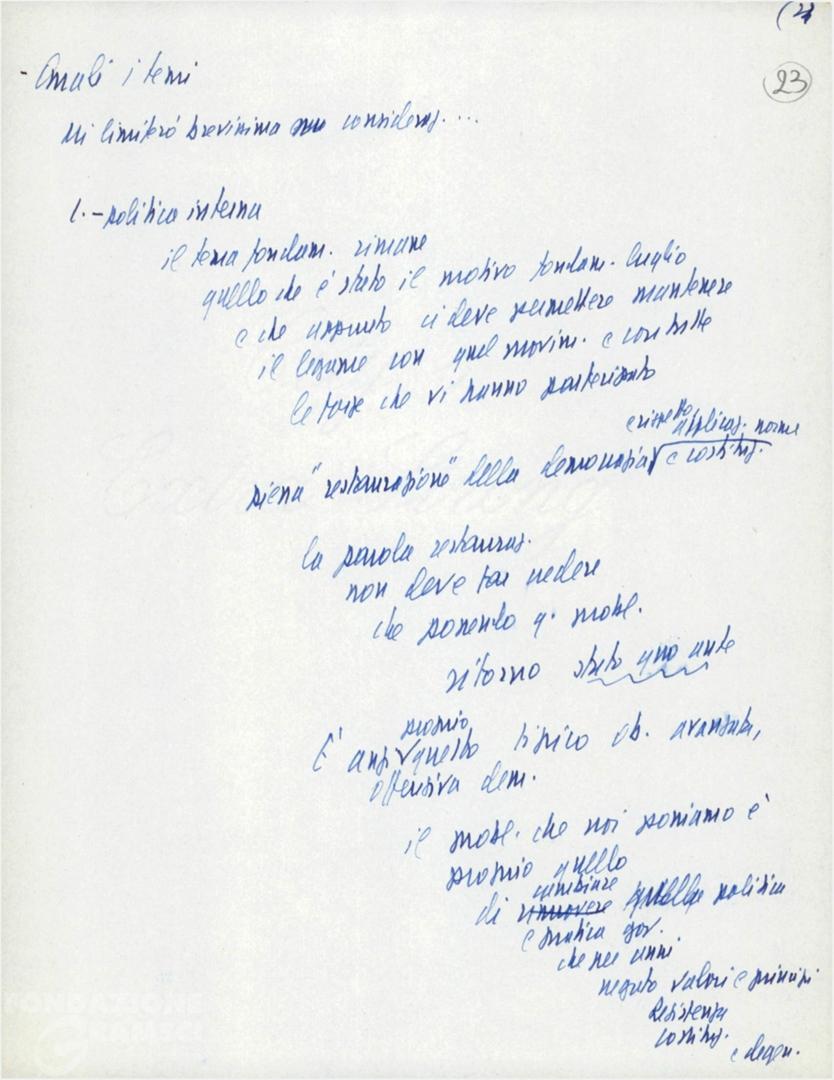 (23
23
- Quali i temi
Mi limiterò brevissima consideraz. ...
1. - politica interna
il tema fondam. rimane
quello che è stato il motivo fondam. luglio
e che appunto ci deve permettere mantenere
il legame con quel movim. e con tutte
le forze che vi hanno partecipato
e rispetto, applicaz. norme
piena "restaurazione" della democrazia e costituz.
la parola restauraz.
non deve far vedere
che ponendo q. probl.
ritorno stato quo ante
proprio
È anzi questo tipico ob. avanzata,
offensiva dem.
il probl. che noi poniamo è
proprio quello
cambiare
di rimuovere quella politica
e pratica gov.
che nee anni
negato valori e principi
Resistenza
costituz.
e degen.
FONDAZIONE
GRAMSCI